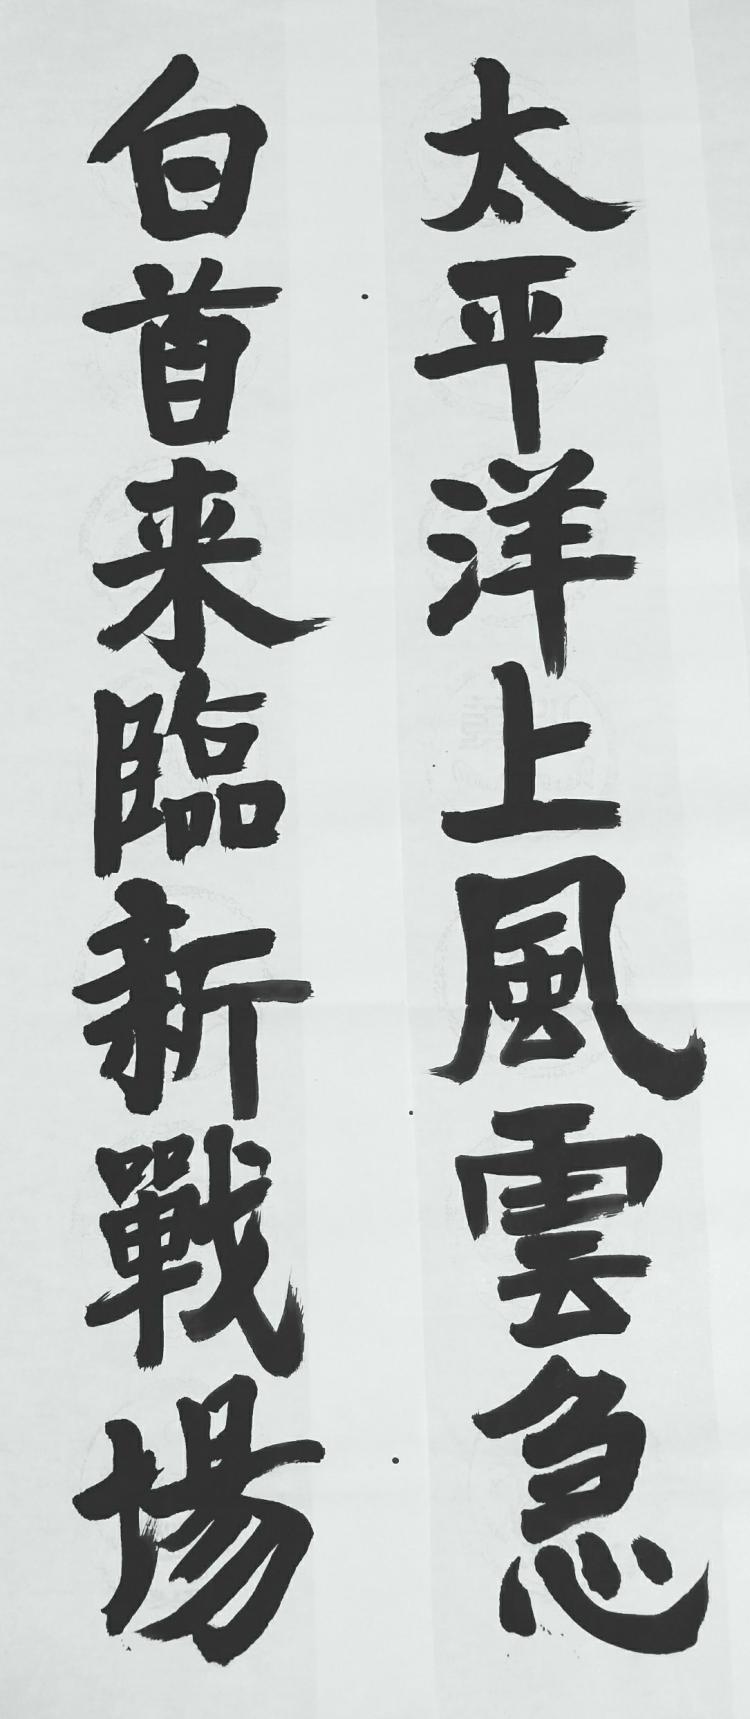 太平洋上風雲急
白首来臨新戰場